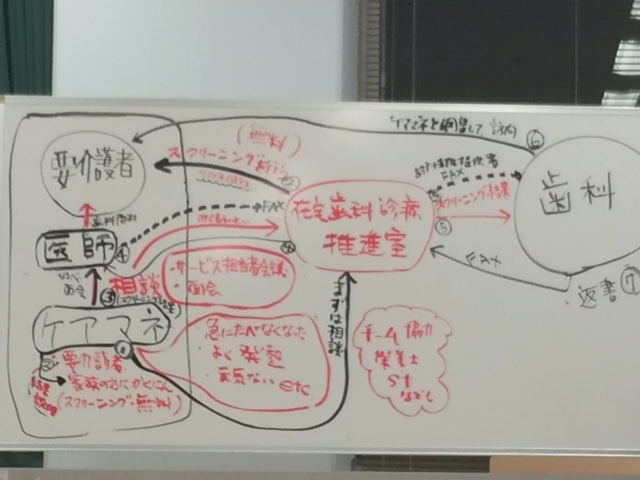 ケアマネと調整して訪問
⑥
(無料)
要介護者
スクリーニング
②
FAX
スクリーニング結果
歯科
FAX
在宅歯科診療
推進室
⑤
医師
④
④
FAX
返書⑦
面会
③
相談
・サービス担当者会議
・面会
まずは相談
ケアマネ
①
急にたべなくなった
・よく発熱
・元気ない etc
チーム協力
栄養士
ST
など
要介護者
家族の方にかくにん
(スクリーニング無料)